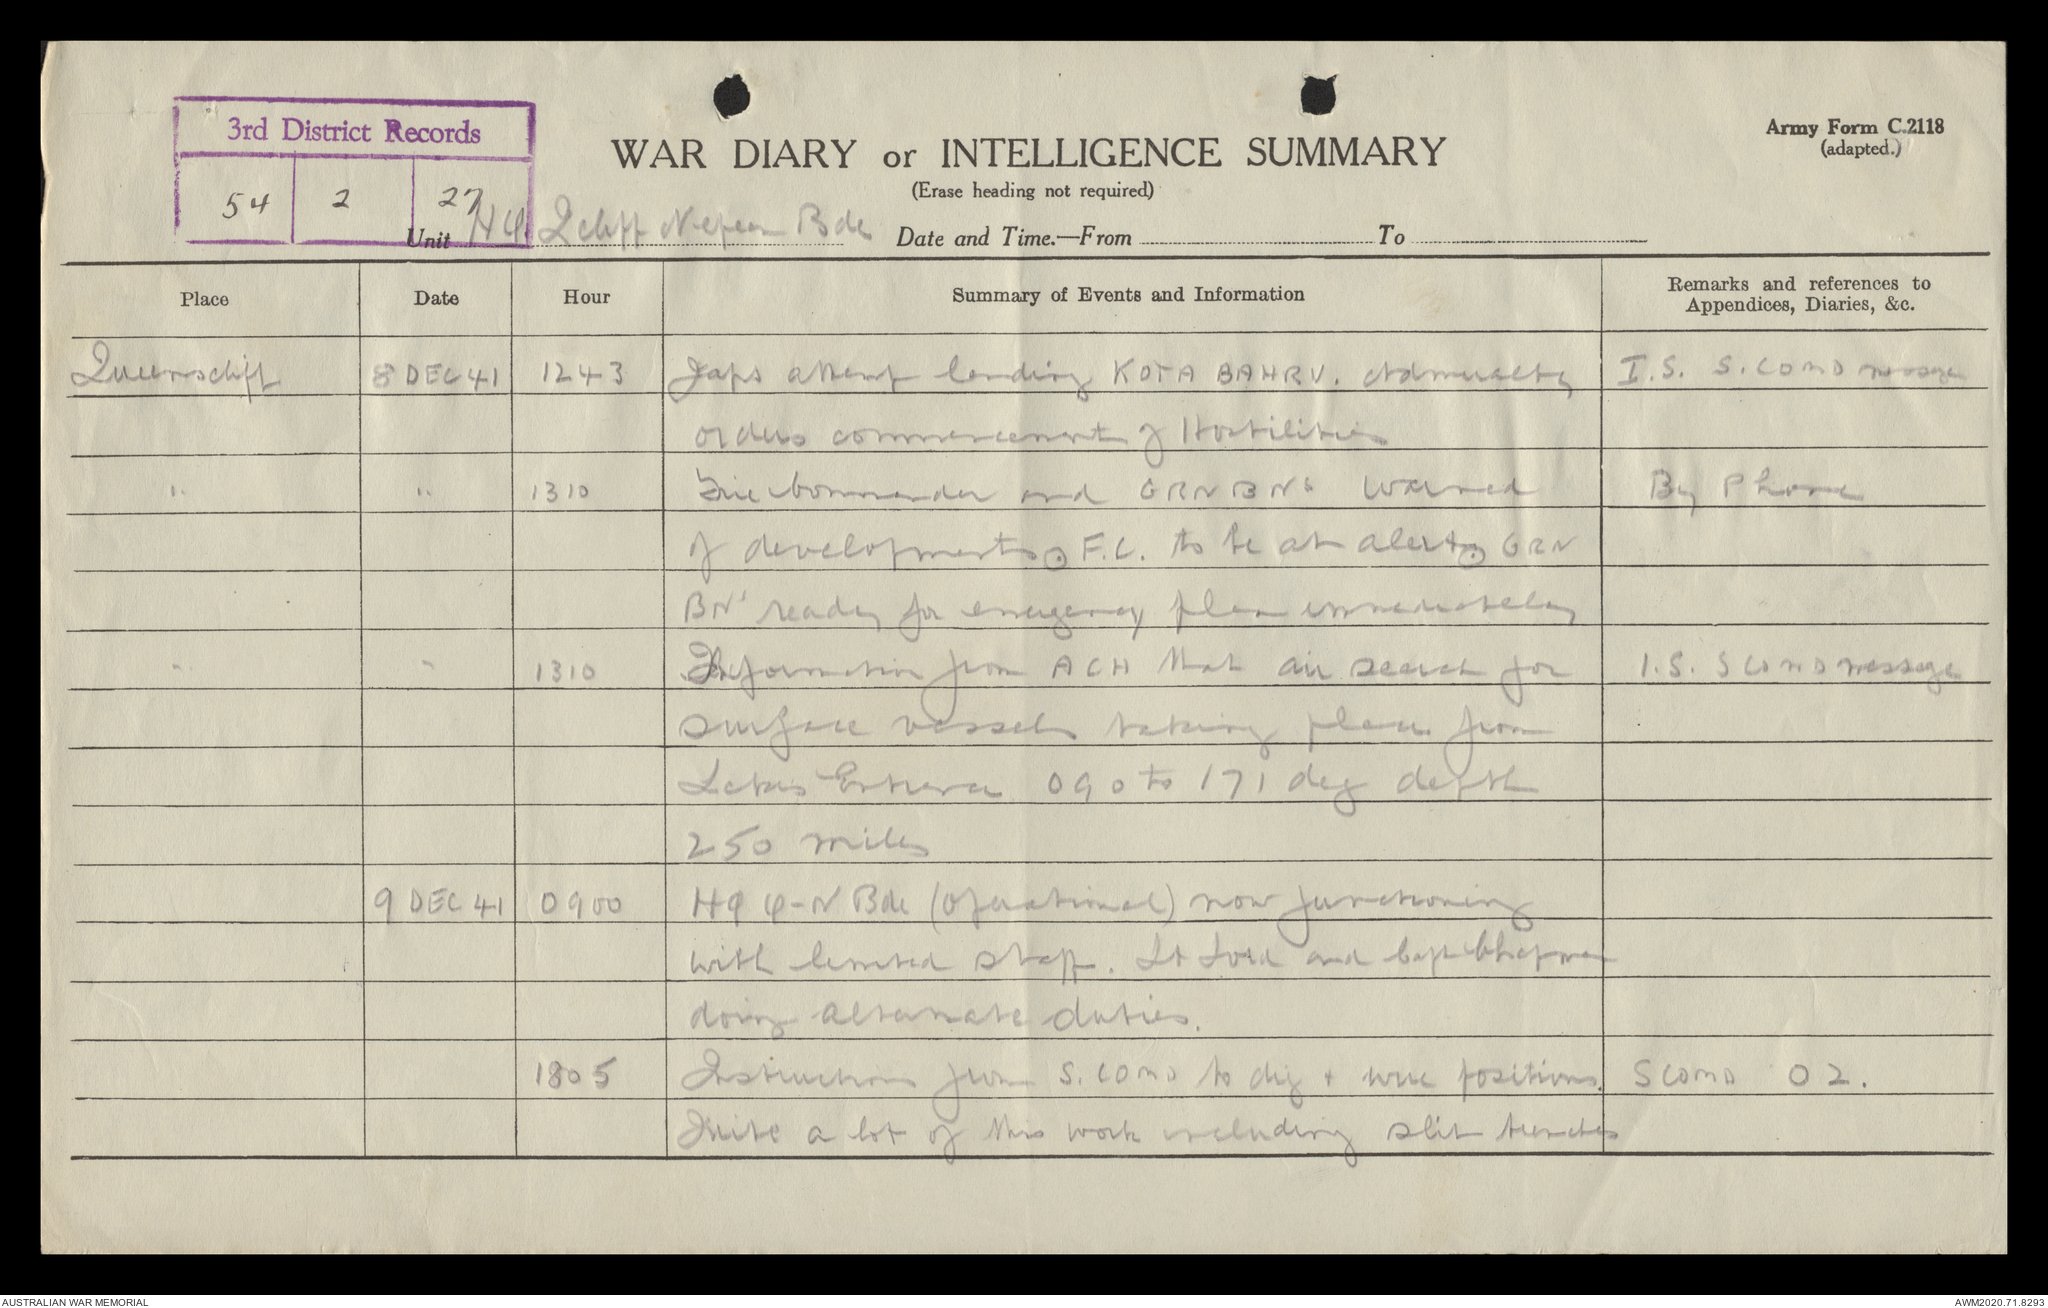 3rd District Records
54 2 27
WAR DIARY or INTELLIGENCE SUMMARY
Army Form C.2118
(adapted.)
(Erase heading not required)
Unit HQ Qcliff Nepean Bde Date and Time.—From To
Place Date Hour Summary of Events and Information Remarks and references to Appendices, Diaries, &c.
Queenscliff 8 DEC 41 1243 Japs attempt landing KOTA BAHRU. Admiralty I.S. S. COMD message
orders commencement of Hostilities
" " 1310 Fire Commander and GRN BNs warned By Phone
of developments. F.C. to be at alert. GRN
BNs ready for emergency plan immediately
" " 1310 Information from ACH that air search for I.S. S COMD message
surface vessels taking place from
Lakes Entrance 090 to 171 deg depth
250 miles
9 DEC 41 0900 HQ Q-N Bde (Operational) now functioning
with limited staff. Lt Lord and Capt Chapman
doing alternate duties.
1805 Instructions from S. COMD to dig + wire positions. S COMD O2.
Quite a lot of this work including slit trenches
AUSTRALIAN WAR MEMORIAL
AWM2020.71.8293